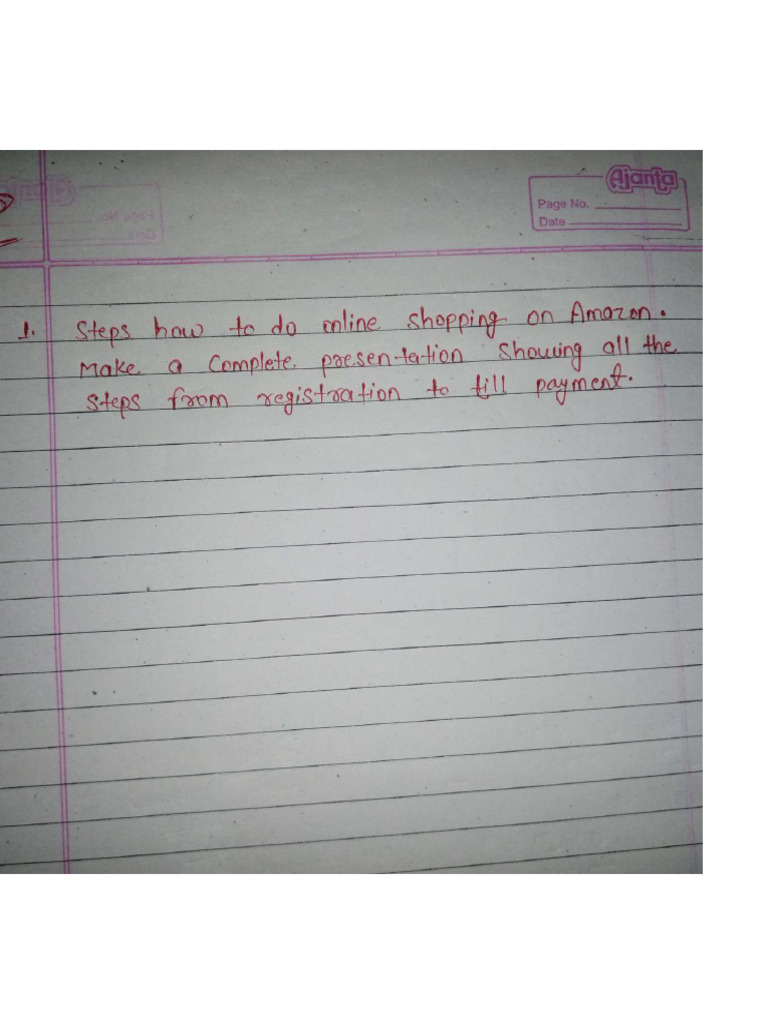 Ajanta
Page No.
Date
1. Steps how to do online shopping on Amazon.
Make a complete presentation showing all the
steps from registration to till payment.